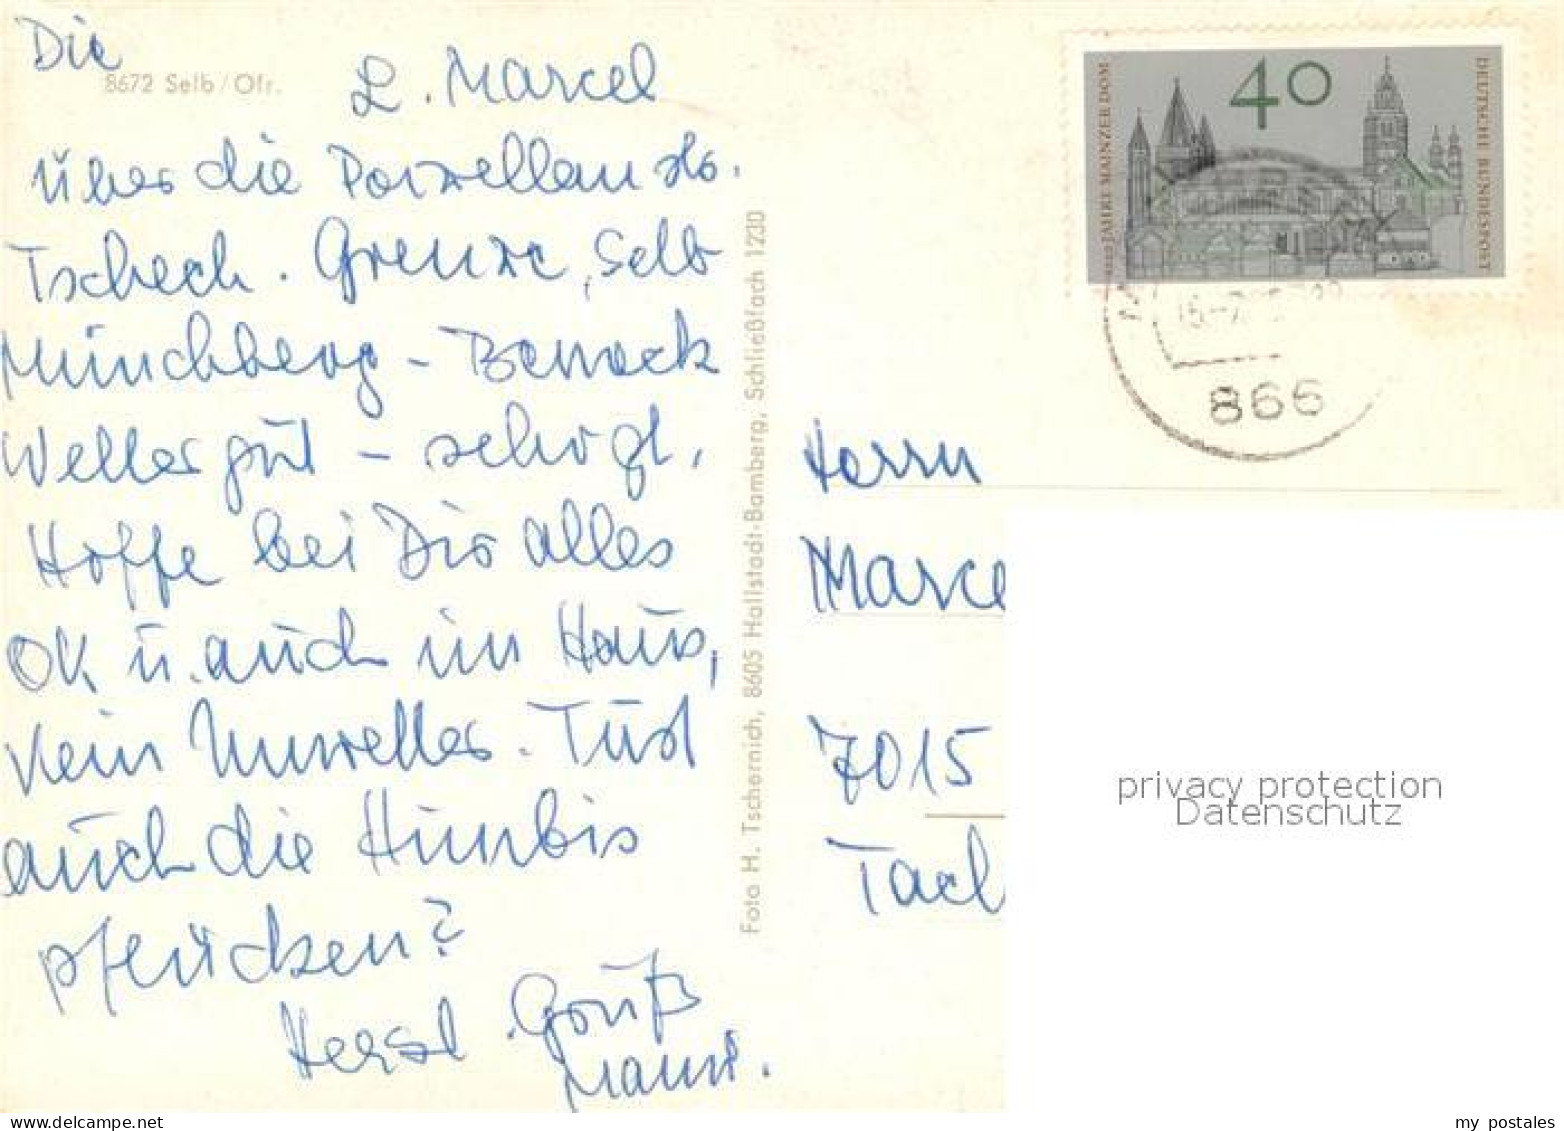 Die
8672 Selb/Ofr.
L. Marcel
über die Porzellanstr.
Tschech. Grenze, Selb
Münchberg -
Wetter gut - sehr gl.
Hoffe bei Dir alles
OK u. auch im Haus,
kein Unwetter. Tust
auch die Himbis
pflücken?
Herzl. Gruß
Foto H. Tschernich, 8605 Hallstadt-Bamberg, Schließfach 1230
40
1000 JAHRE MAINZER DOM
DEUTSCHE BUNDESPOST
866
Herrn
Marce
7015
Tach
privacy protection
Datenschutz
my postales